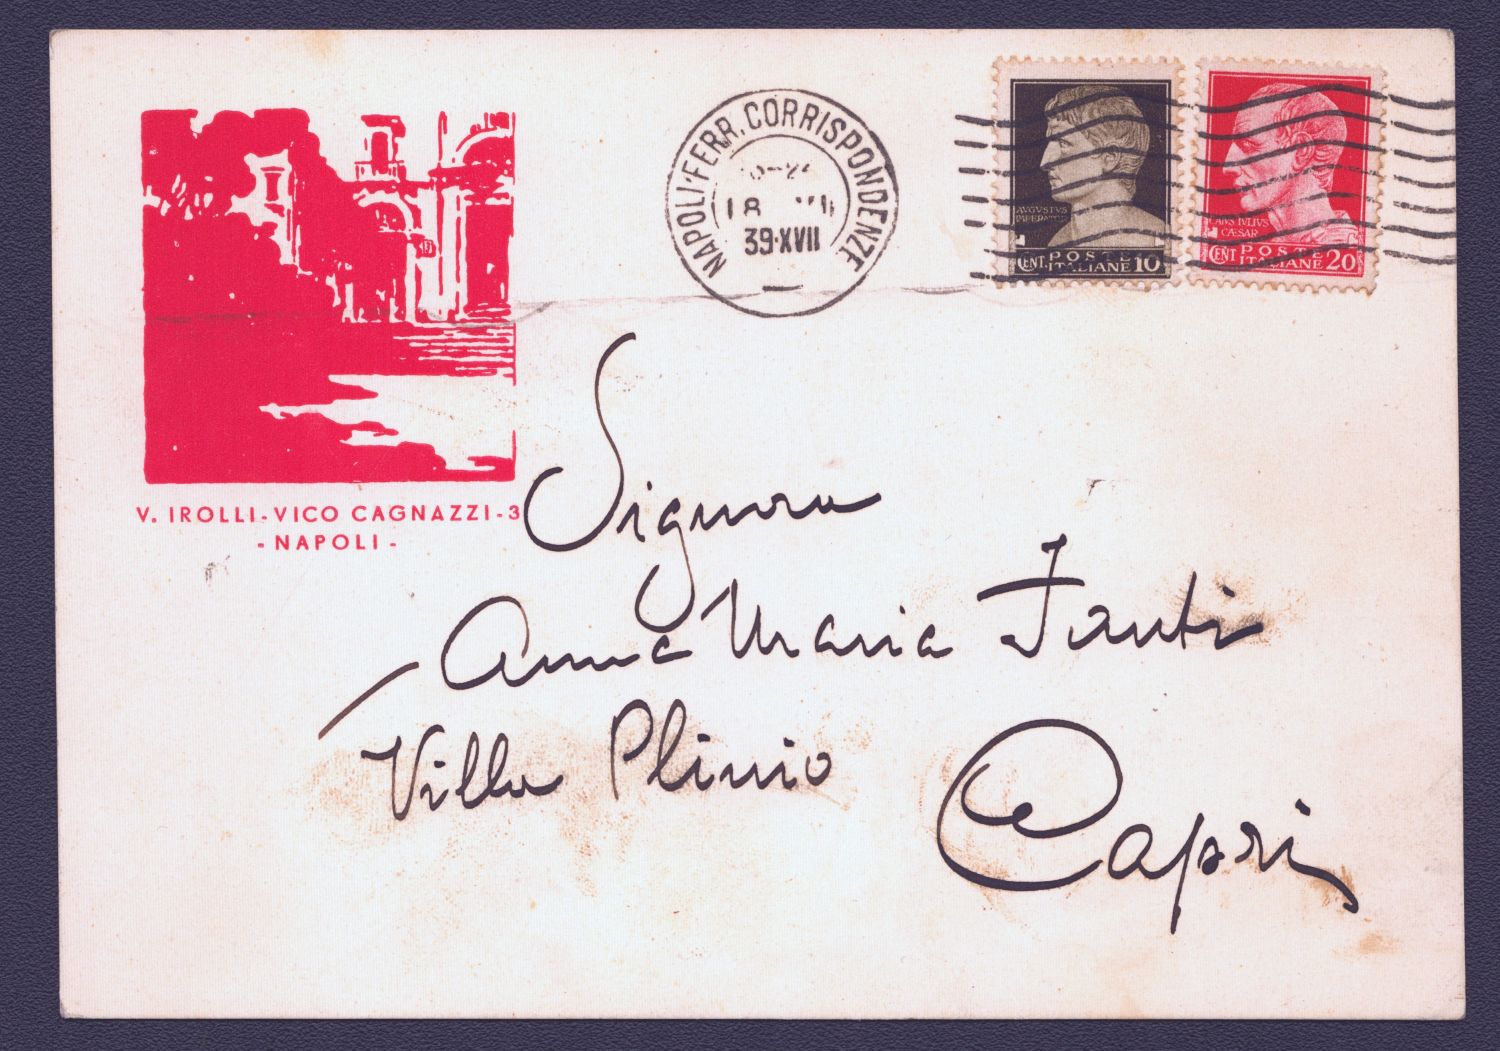 V. IROLLI - VICO CAGNAZZI - 3
- NAPOLI -
NAPOLI·FERR. CORRISPONDENZE
18
39·XVII
AVGVSTVS
IMPERATOR
CENT. POSTE
ITALIANE 10
CAIVS IVLIVS
CÆSAR
CENT POSTE
ITALIANE 20
Signora
Anna Maria Fanti
Villa Plinio
Capri